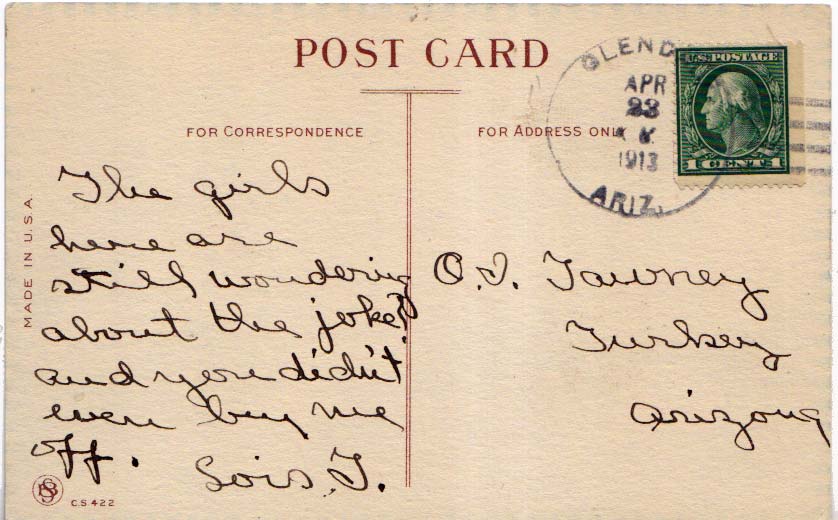 POST CARD
FOR CORRESPONDENCE
FOR ADDRESS ONLY
GLEND
APR
23
1913
ARIZ.
U.S. POSTAGE
1 CENT 1
MADE IN U.S.A.
The girls
here are
still wondering
about the joke?
and you didn't
even buy me
off.
Lois T.
O.I. Tawney
Turkey
Arizona
C.S. 422